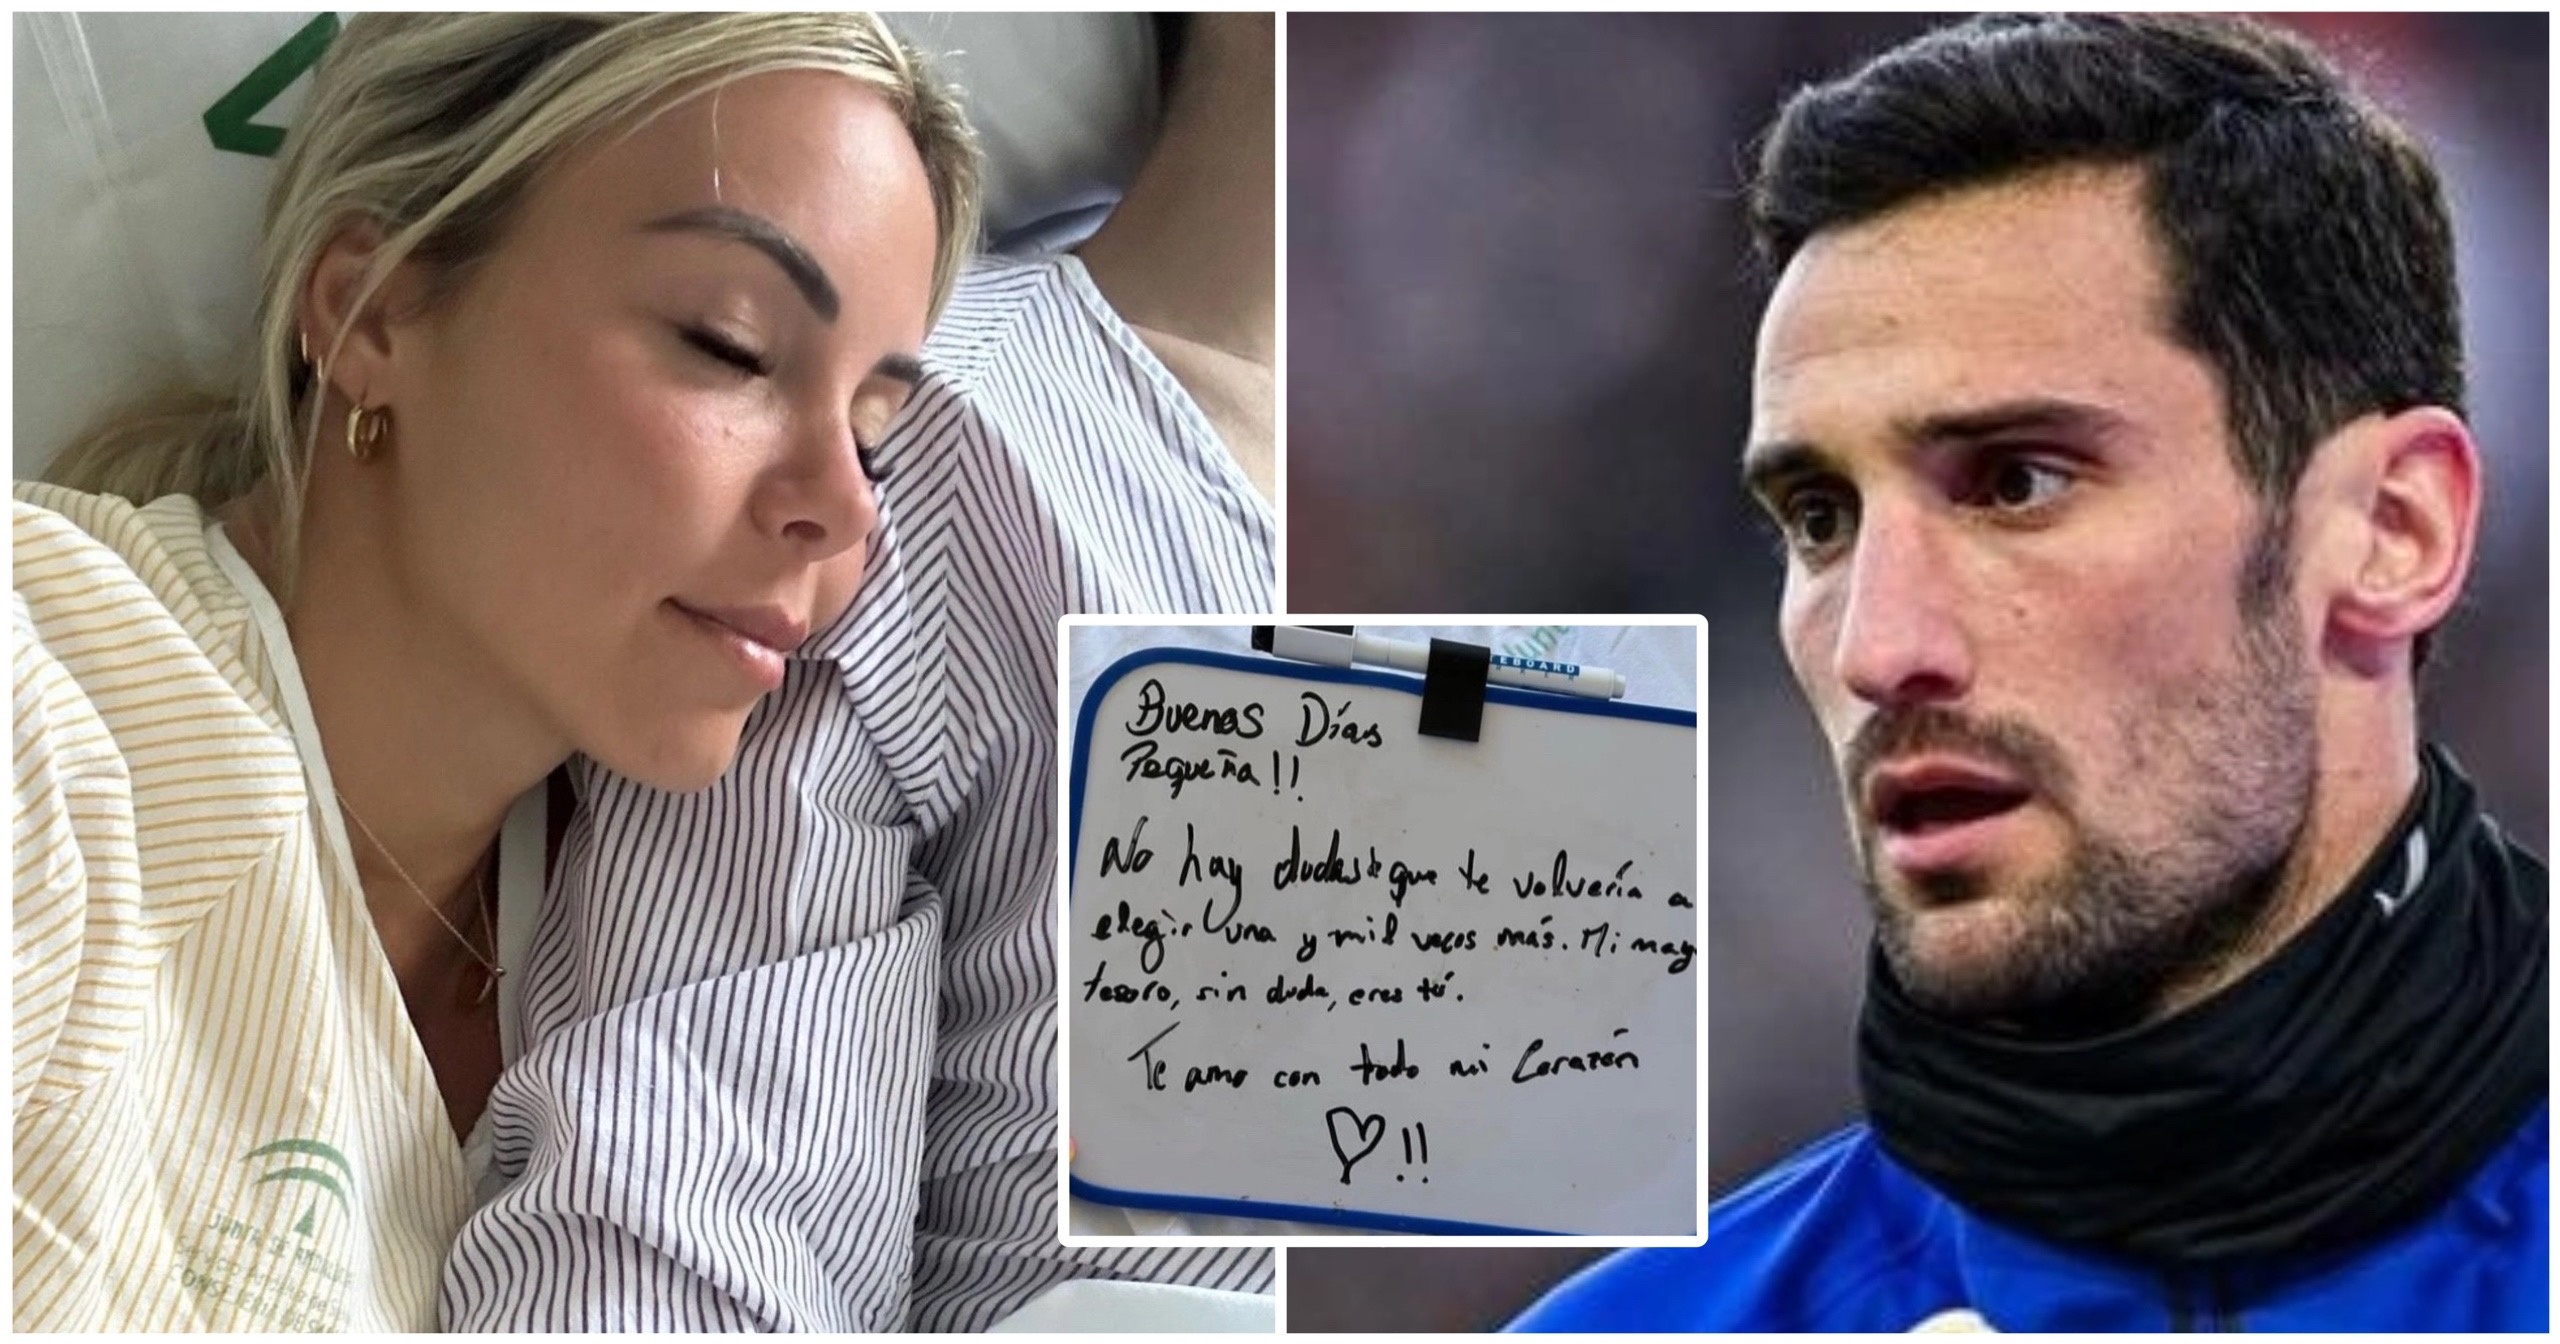 EBOARD
Buenos Días
Pequeña!!
No hay dudas de que te volvería a
elegir una y mil veces más. Mi may
tesoro, sin duda, eres tú.
Te amo con todo mi Corazón
!!
JUNTA DE ANDALUCÍA
CONSEJERIA DE